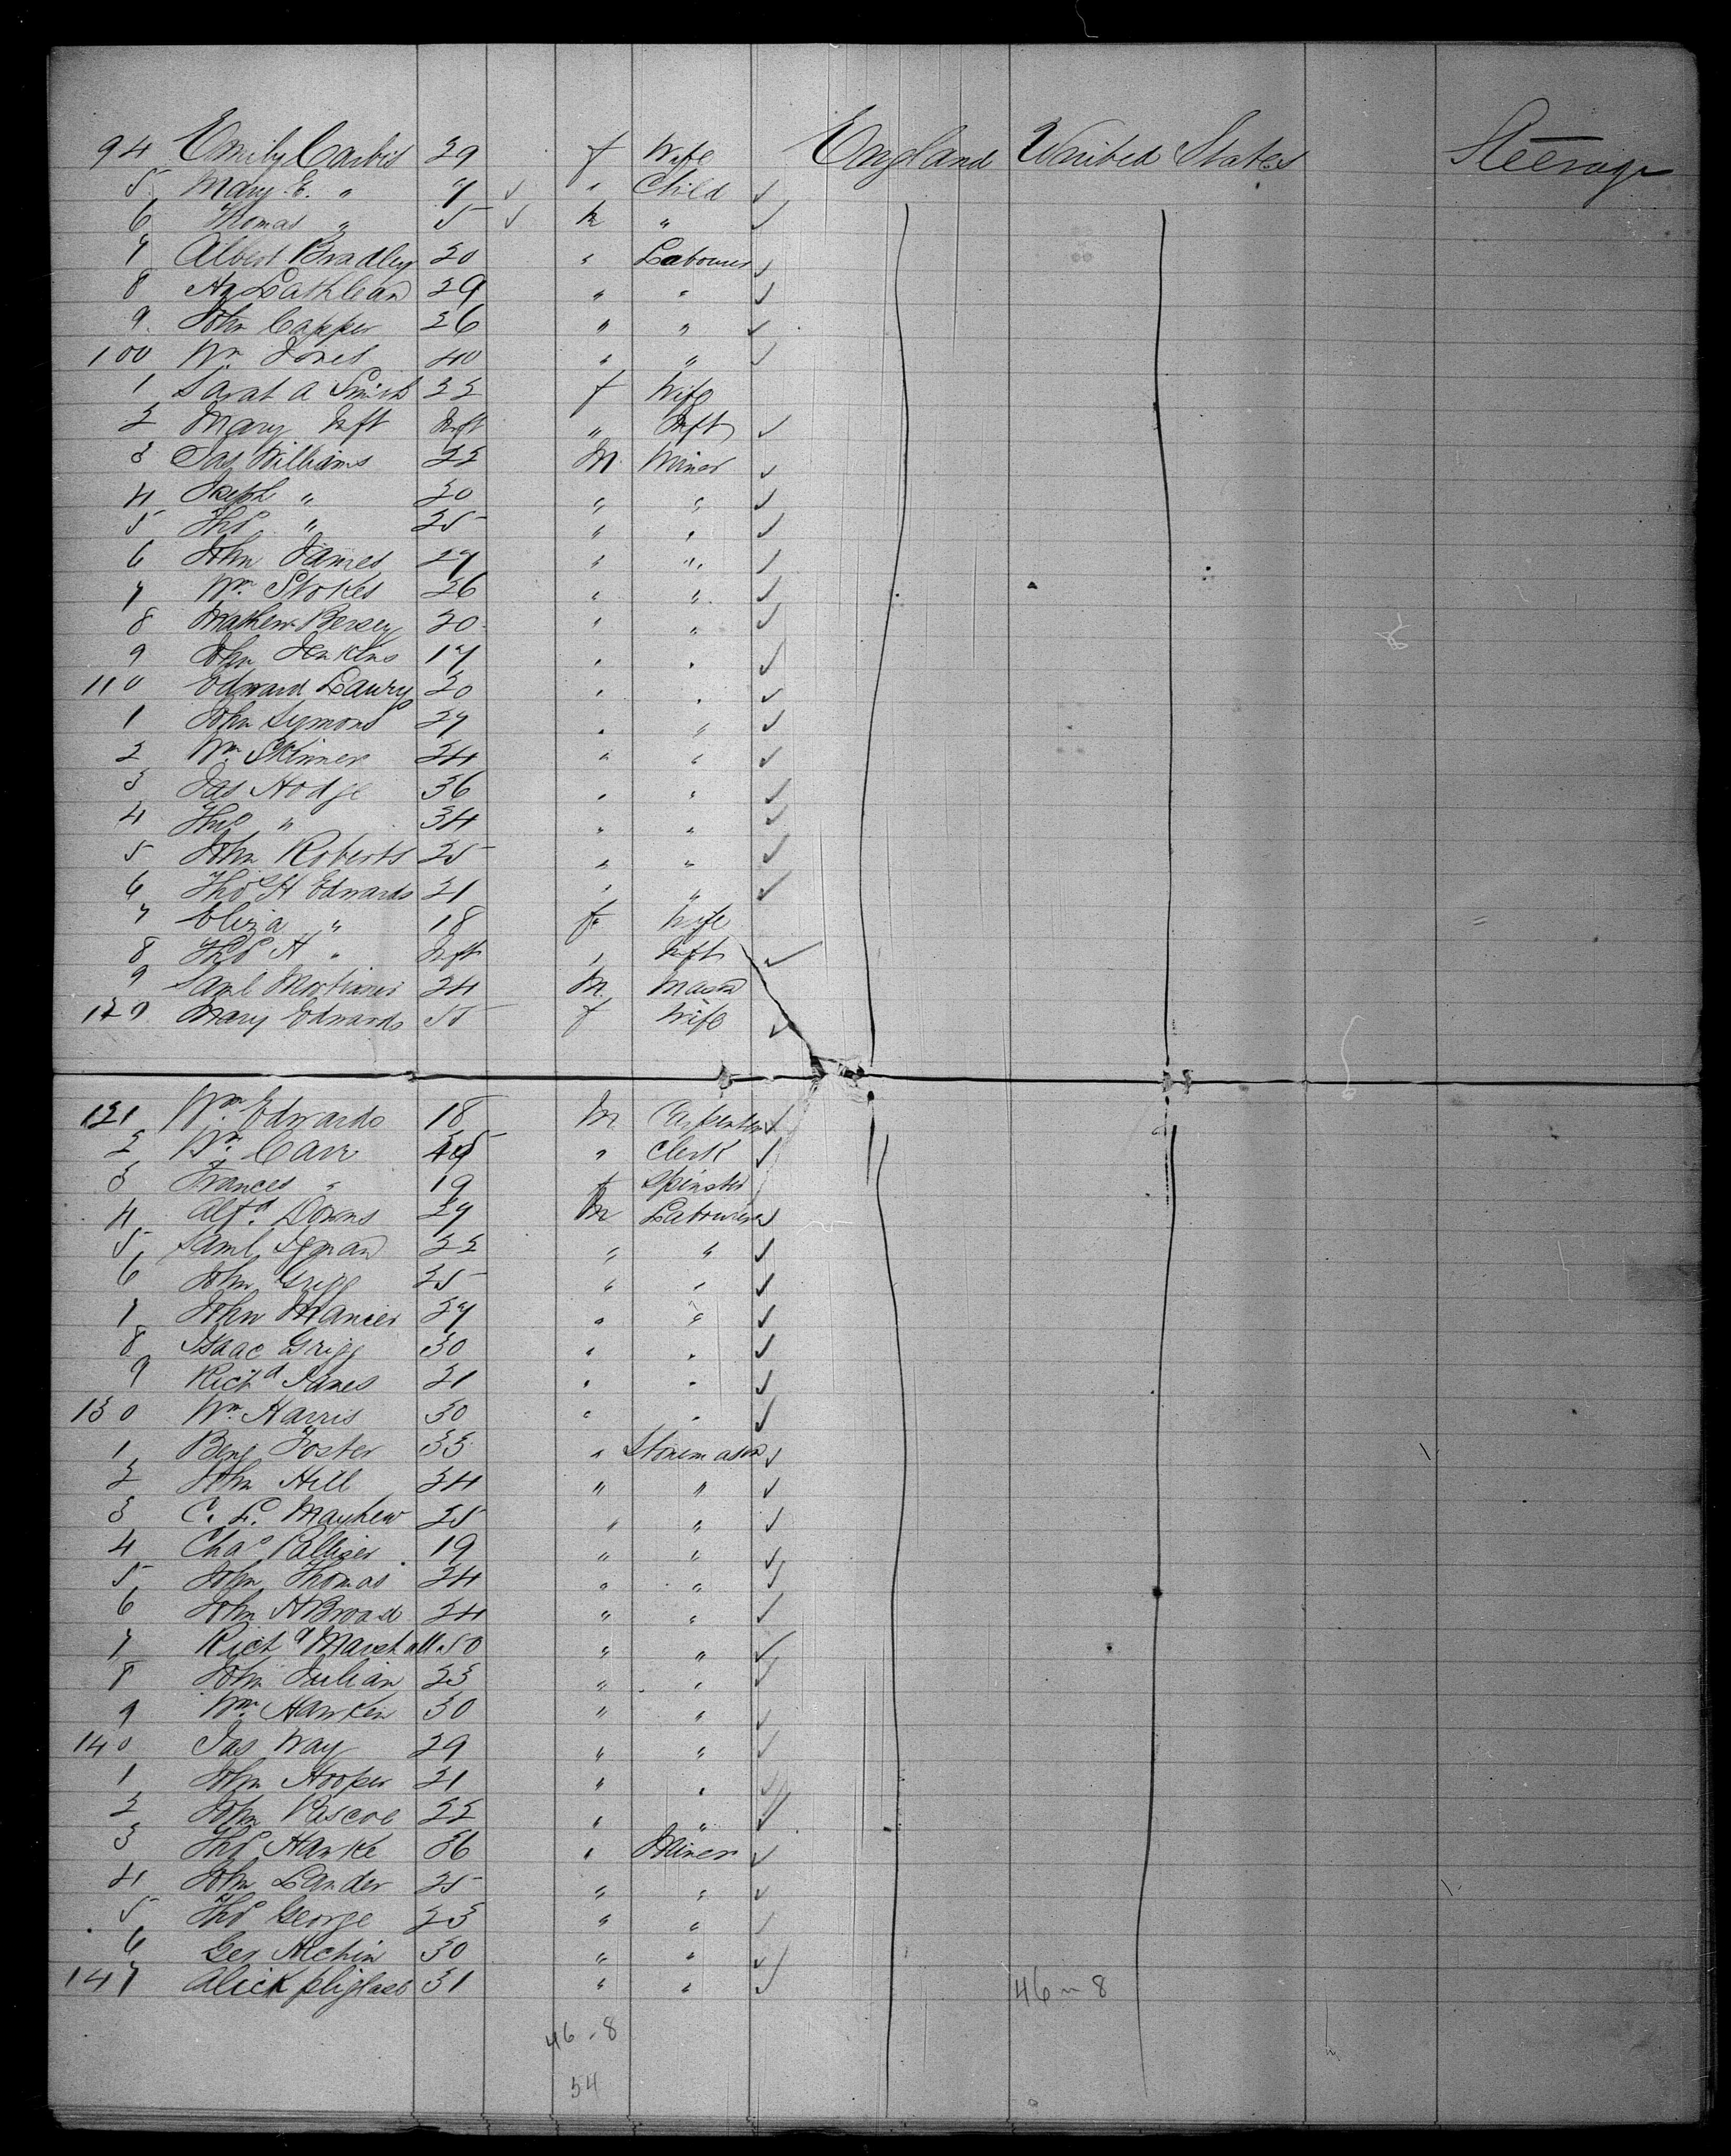 94 Emily Carbis 29 f Wife England United States Steerage
5 Mary E. " 7 " Child
6 Thomas " 5 m "
7 Albert Bradley 20 " Labourer
8 Lathlean 29 " "
9 John Capper 26 " "
100 Wm Jones 40 " "
1 Sarah A Smith 22 f Wife
2 Mary Inft Inft " Inft
3 Jas Williams 22 M Miner
4 Joseph " 20 " "
5 Thos " 25 " "
6 John James 27 " "
7 Wm Stokes 26 " "
8 Mathew Bersey 20 " "
9 John Jenkins 17 " "
110 Edward Laury 20 " "
1 John Symons 27 " "
2 Wm Skinner 24 " "
3 Jas Hodge 36 " "
4 Thos " 34 " "
5 John Roberts 25 " "
6 Thos H Edwards 21 " "
7 Eliza " 18 f Wife
8 Thos H " Inft " Inft
9 Saml Mortimer 24 M Mason
120 Mary Edwards 55 f Wife
121 Wm Edwards 18 M Carpenter
2 Wm Carr 45 " Clerk
3 Frances " 19 f Spinster
4 Alfd Downs 29 M Labourer
5 Saml 22 " "
6 John Grigg 25 " "
7 John 27 " "
8 Isaac Grigg 30 " "
9 Richd James 21 " "
130 Wm Harris 30 " "
1 Benj Foster 33 " Stonemason
2 John Hill 24 " "
3 C. L. Mayhew 25 " "
4 Chas Palliser 19 " "
5 John Thomas 24 " "
6 John H Broad 24 " "
7 Richd Marshall 50 " "
8 John Julian 23 " "
9 Wm Hawken 30 " "
140 Jas Way 29 " "
1 John Hooper 21 " "
2 John Pascoe 22 " "
3 Thos Hawke 36 " Miner
4 John Lander 25 " "
5 Thos George 23 " "
6 Geo 30 " "
147 Alick 31 " "
46 - 8
46 - 8
54